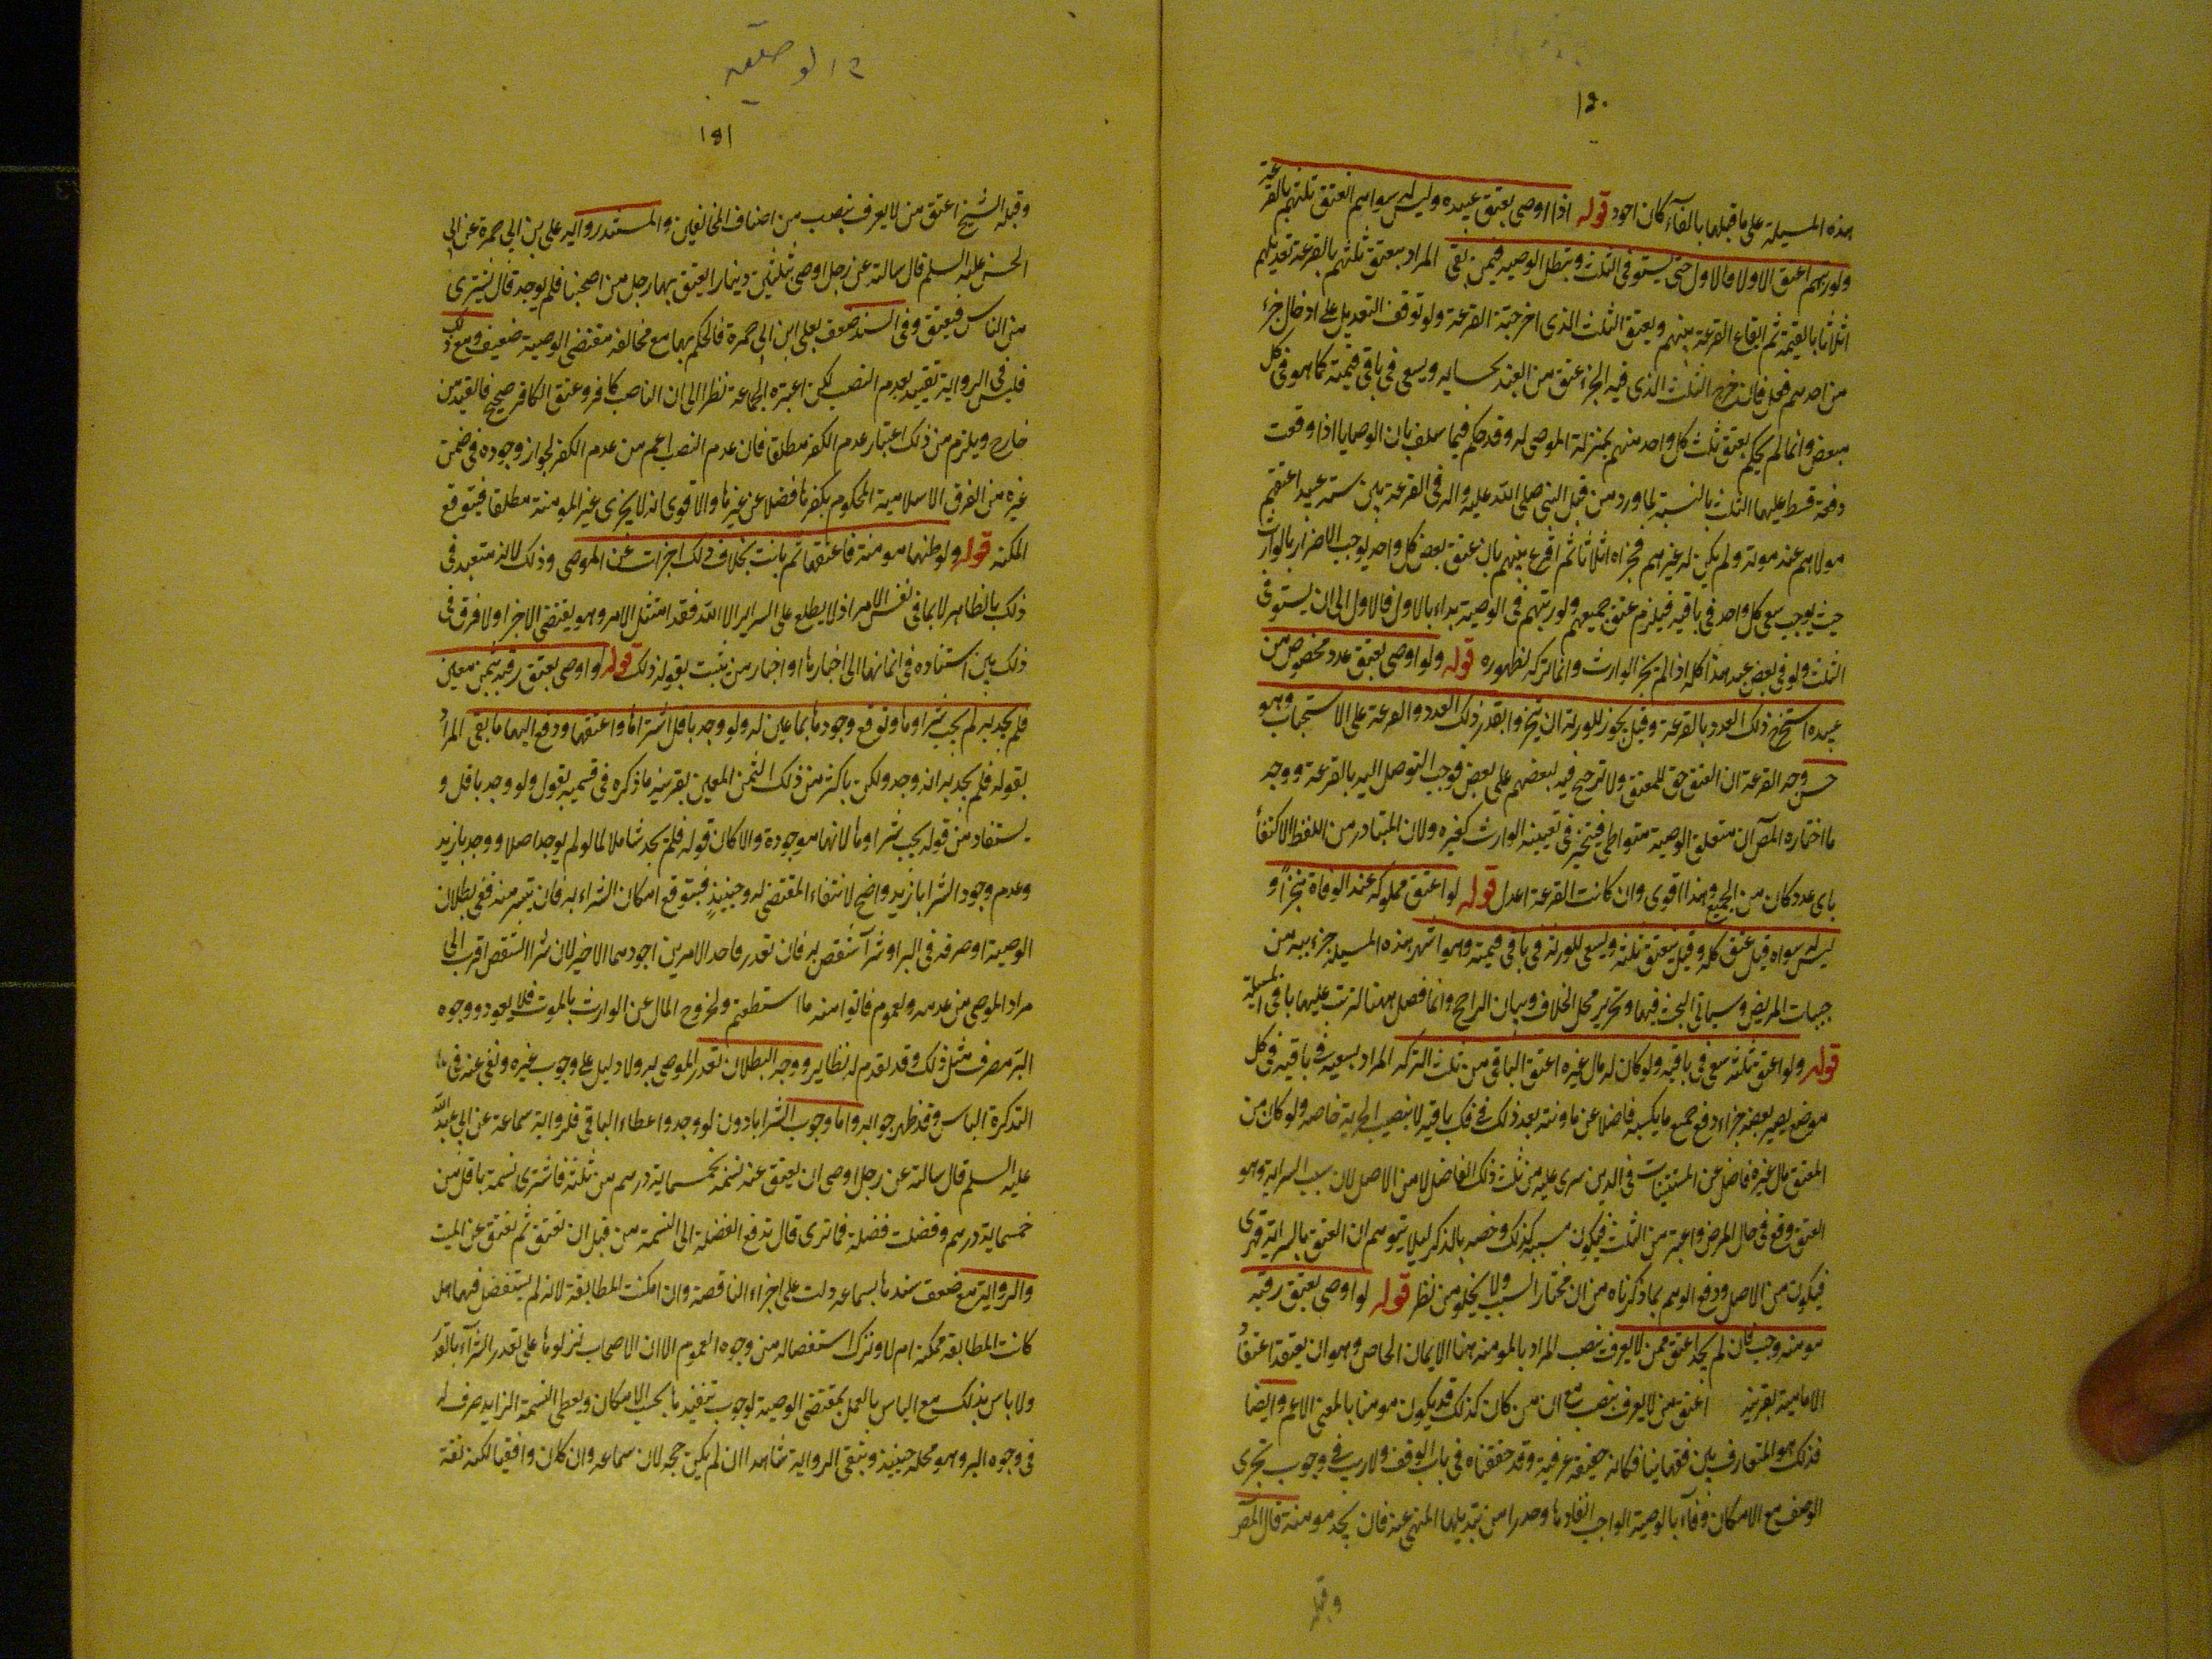 ١٥٠
هذه المسيلة على ما قبلها بالفآء كان اجود قوله اذا اوصى بعتق عبيده وليس له سواهم انعتق ثلثهم بالقرعة
ولو رتبهم اعتق الاول فالاول حتى يستوفى الثلث وتبطل الوصيه فيمن بقى المراد بعتق ثلثهم بالقرعة تعديلهم
اثلاثا بالقيمة ثم ايقاع القرعة بينهم ويعتق الثلث الذى اخرجته القرعة ولو توقف التعديل على ادخال جزء
من احدهم فعل فان خرج الثلث الذى فيه الجزء عتق من العبد بحسابه ويسعى في باقى قيمته كما هو فى كل
مبعض وانما لم يحكم بعتق ثلث كل واحد منهم بمنزلة الموصى له وقد حكم فيما سلف بان الوصايا اذا وقعت
دفعة قسط عليها الثلث بالنسبة لما ورد من فعل النبى صلى الله عليه واله فى القرعة بين ستة عبيد اعتقهم
مولاهم عند موته ولم يكن له غيرهم فجزاه اثلاثا ثم اقرع بينهم بان عتق بعض كل واحد يوجب الاضرار بالوارث
حيث يوجب سعى كل واحد فى باقيه فيلزم عتق جميعهم ولو رتبهم فى الوصية بداء بالاول فالاول الى ان يستوفى
الثلث ولو فى بعض عبد هذا كله اذا لم يجز الوارث وانما تركه لظهوره قوله ولو اوصى بعتق عدد مخصوص من
عبيده استخرج ذلك العدد بالقرعة وقيل يجوز للورثة ان يتخيروا بقدر ذلك العدد والقرعة على الاستحباب وهو
حسن وجه القرعة ان العتق حق للمعتق ولا ترجيح فيه لبعضهم على بعض فوجب التوصل اليه بالقرعة ووجه
ما اختاره المص ان متعلق الوصية متواطى فيتخير فى تعيينه الوارث كغيره ولان المتبادر من اللفظ الاكتفآ
باى عدد كان من الجميع وهذا اقوى وان كانت القرعة اعدل قوله لو اعتق مملوكه عند الوفاة منجزا و
ليس له سواه قيل عتق كله وقيل ينعتق ثلثه ويسعى للورثة فى باقى قيمته وهو اشهر هذه المسيلة جزئيه من
جزئيات المريض وسياتى البحث فيها وتحرير محل الخلاف وبيان الراجح وانما فصل هنا لترتب عليها باقى المسيلة
قوله ولو اعتق ثلثه سعى فى باقيه ولو كان له مال غيره اعتق الباقى من ثلث التركه المراد بسعيه فى باقيه فى كل
موضع يصير بعضه جزاء دفع جميع ما يكسبه فاضلا عن ماونته بعد ذلك فى فك باقيه لا بنصيب الحرية خاصه ولو كان من
المعتق مال غيره فاضل عن المستثنيات فى الدين سرى عليه من ثلث ذلك الفاضل لا من الاصل لان سبب السراية وهو
العتق وقع فى حال المرض واعتبر من الثلث فيكون مسببه كذلك وخصه بالذكر ليلا يتوهم ان العتق بالسراية قهرى
فيكون من الاصل ودفع الوهم بما ذكرناه من ان مختار السبب ولا يخلو من نظر قوله لو اوصى بعتق رقبه
مومنه وجب فان لم يجد اعتق ممن لا يعرف بنصب المراد بالمومنه هنا الايمان الخاص وهو ان يعتقد اعتقاد
الامامية بقرينة اعتق من لا يعرف بنصب مع ان من كان كذلك قد يكون مومنا بالمعنى الاعم وايضا
فذلك هو المتعارف بين فقهاينا فكانه حقيقة عرفيه وقد حققناه فى باب الوقف ولا ريب فى وجوب تحرى
الوصف مع الامكان وفآء بالوصية الواجب انفاذها وحدرا من تبديلها المنهى عنه فان لم يجد مومنة قال المص
وقيل
١٥١
وقبله الشيخ اعتق من لا يعرف بنصب من اصناف المخالفين والمستند رواية على بن ابى حمزة عن ابى
الحسن عليه السلم قال سالته عن رجل اوصى بثلثين دينارا يعتق بها رجل من اصحابنا فلم يوجد قال يشترى
من الناس فيعتق وفى السند ضعف بعلى ابن ابى حمزة فالحكم بها مع مخالفة مقتضى الوصية ضعيف ومع ذلك
فليس فى الرواية تقييد بعدم النصب لكن اعتبره الجماعة نظرا الى ان الناصب كافر وعتق الكافر صحيح فالقيد من
خارج ويلزم من ذلك اعتبار عدم الكفر مطلقا فان عدم النصب اعم من عدم الكفر لجواز وجوده فى ضمن
غيره من الفرق الاسلامية المحكوم بكفرها فضلا عن غيرها والاقوى انه لا يجزى غير المومنة مطلقا فيتوقع
المكنة قوله ولو ظنها مومنة فاعتقها ثم بانت بخلاف ذلك اجزات عن الموصى وذلك لانه متعبد فى
ذلك بالظاهر لا بما فى نفس الامر اذ لا يطلع على السراير الا الله فقد امتثل الامر وهو يقتضى الاجزا ولا فرق فى
ذلك بين استناده فى ايمانها الى اخبارها او اخبار من يثبت بقوله ذلك قوله لو اوصى بعتق رقبه بثمن معين
فلم يجد به لم يجب شراوها وتوقع وجودها بما عين له ولو وجد باقل اشتراها واعتقها ودفع اليها ما بقى المراد
بقوله فلم يجد به انه وجد ولكن باكثر من ذلك الثمن المعين بقرينة ما ذكره فى قسيمه بقوله ولو وجد باقل و
يستفاد من قوله يجب شراوها لانها موجودة والا كان قوله فلم يجد شاملا لما لو لم يوجد اصلا ووجد بازيد
وعدم وجود الشرا بازيد واضح لانتفاء المقتضى له وحينيذ فيتوقع امكان الشراء به فان يئس منه ففى بطلان
الوصية او صرفه فى البر او شرآ شقص به فان تعذر فاحد الامرين اوجه اجودهما الاخير لان شرا الشقص اقرب الى
مراد الموصى من عدمه ولعموم فاتوا منه ما استطعتم ولخروج المال عن الوارث بالموت فلا يعود ووجوه
البر مصرف مثل ذلك وقد تقدم له نظاير ووجه البطلان تعذر الموصى به ولا دليل على وجوب غيره ونفى عنه فى
التذكرة الباس وقد ظهر جوابه واما وجوب الشرا بادون لو وجد واعطاء الباقى فلرواية سماعة عن ابى عبد الله
عليه السلم قال سالته عن رجل اوصى ان يعتق عنه نسمة بخمسماية درهم من ثلثه فاشترى نسمة باقل من
خمسماية درهم وفضلت فضلة فما ترى قال تدفع الفضلة الى النسمة من قبل ان تعتق ثم تعتق عن الميت
والرواية مع ضعف سندها بسماعه دلت على اجزاء الناقصة وان امكنت المطابقة لانه لم يستفصل فيها هل
كانت المطابقة ممكنة ام لا وترك استفصاله من وجوه العموم الا ان الاصحاب نزلوها على تعذر الشرآء بالقدر
ولا باس بذلك مع الياس بالعمل بمقتضى الوصية لوجوب تنفيذها بحسب الامكان ويعطى النسمة الزايد صرف له
فى وجوه البر وهو محله حينيذ وتبقى الرواية شاهدا ان لم يكن حجة لان سماعه وان كان واقفيا لكنه ثقة